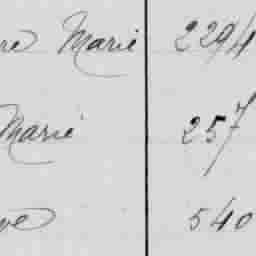 re Marie 2294
Marie 257
ve 540